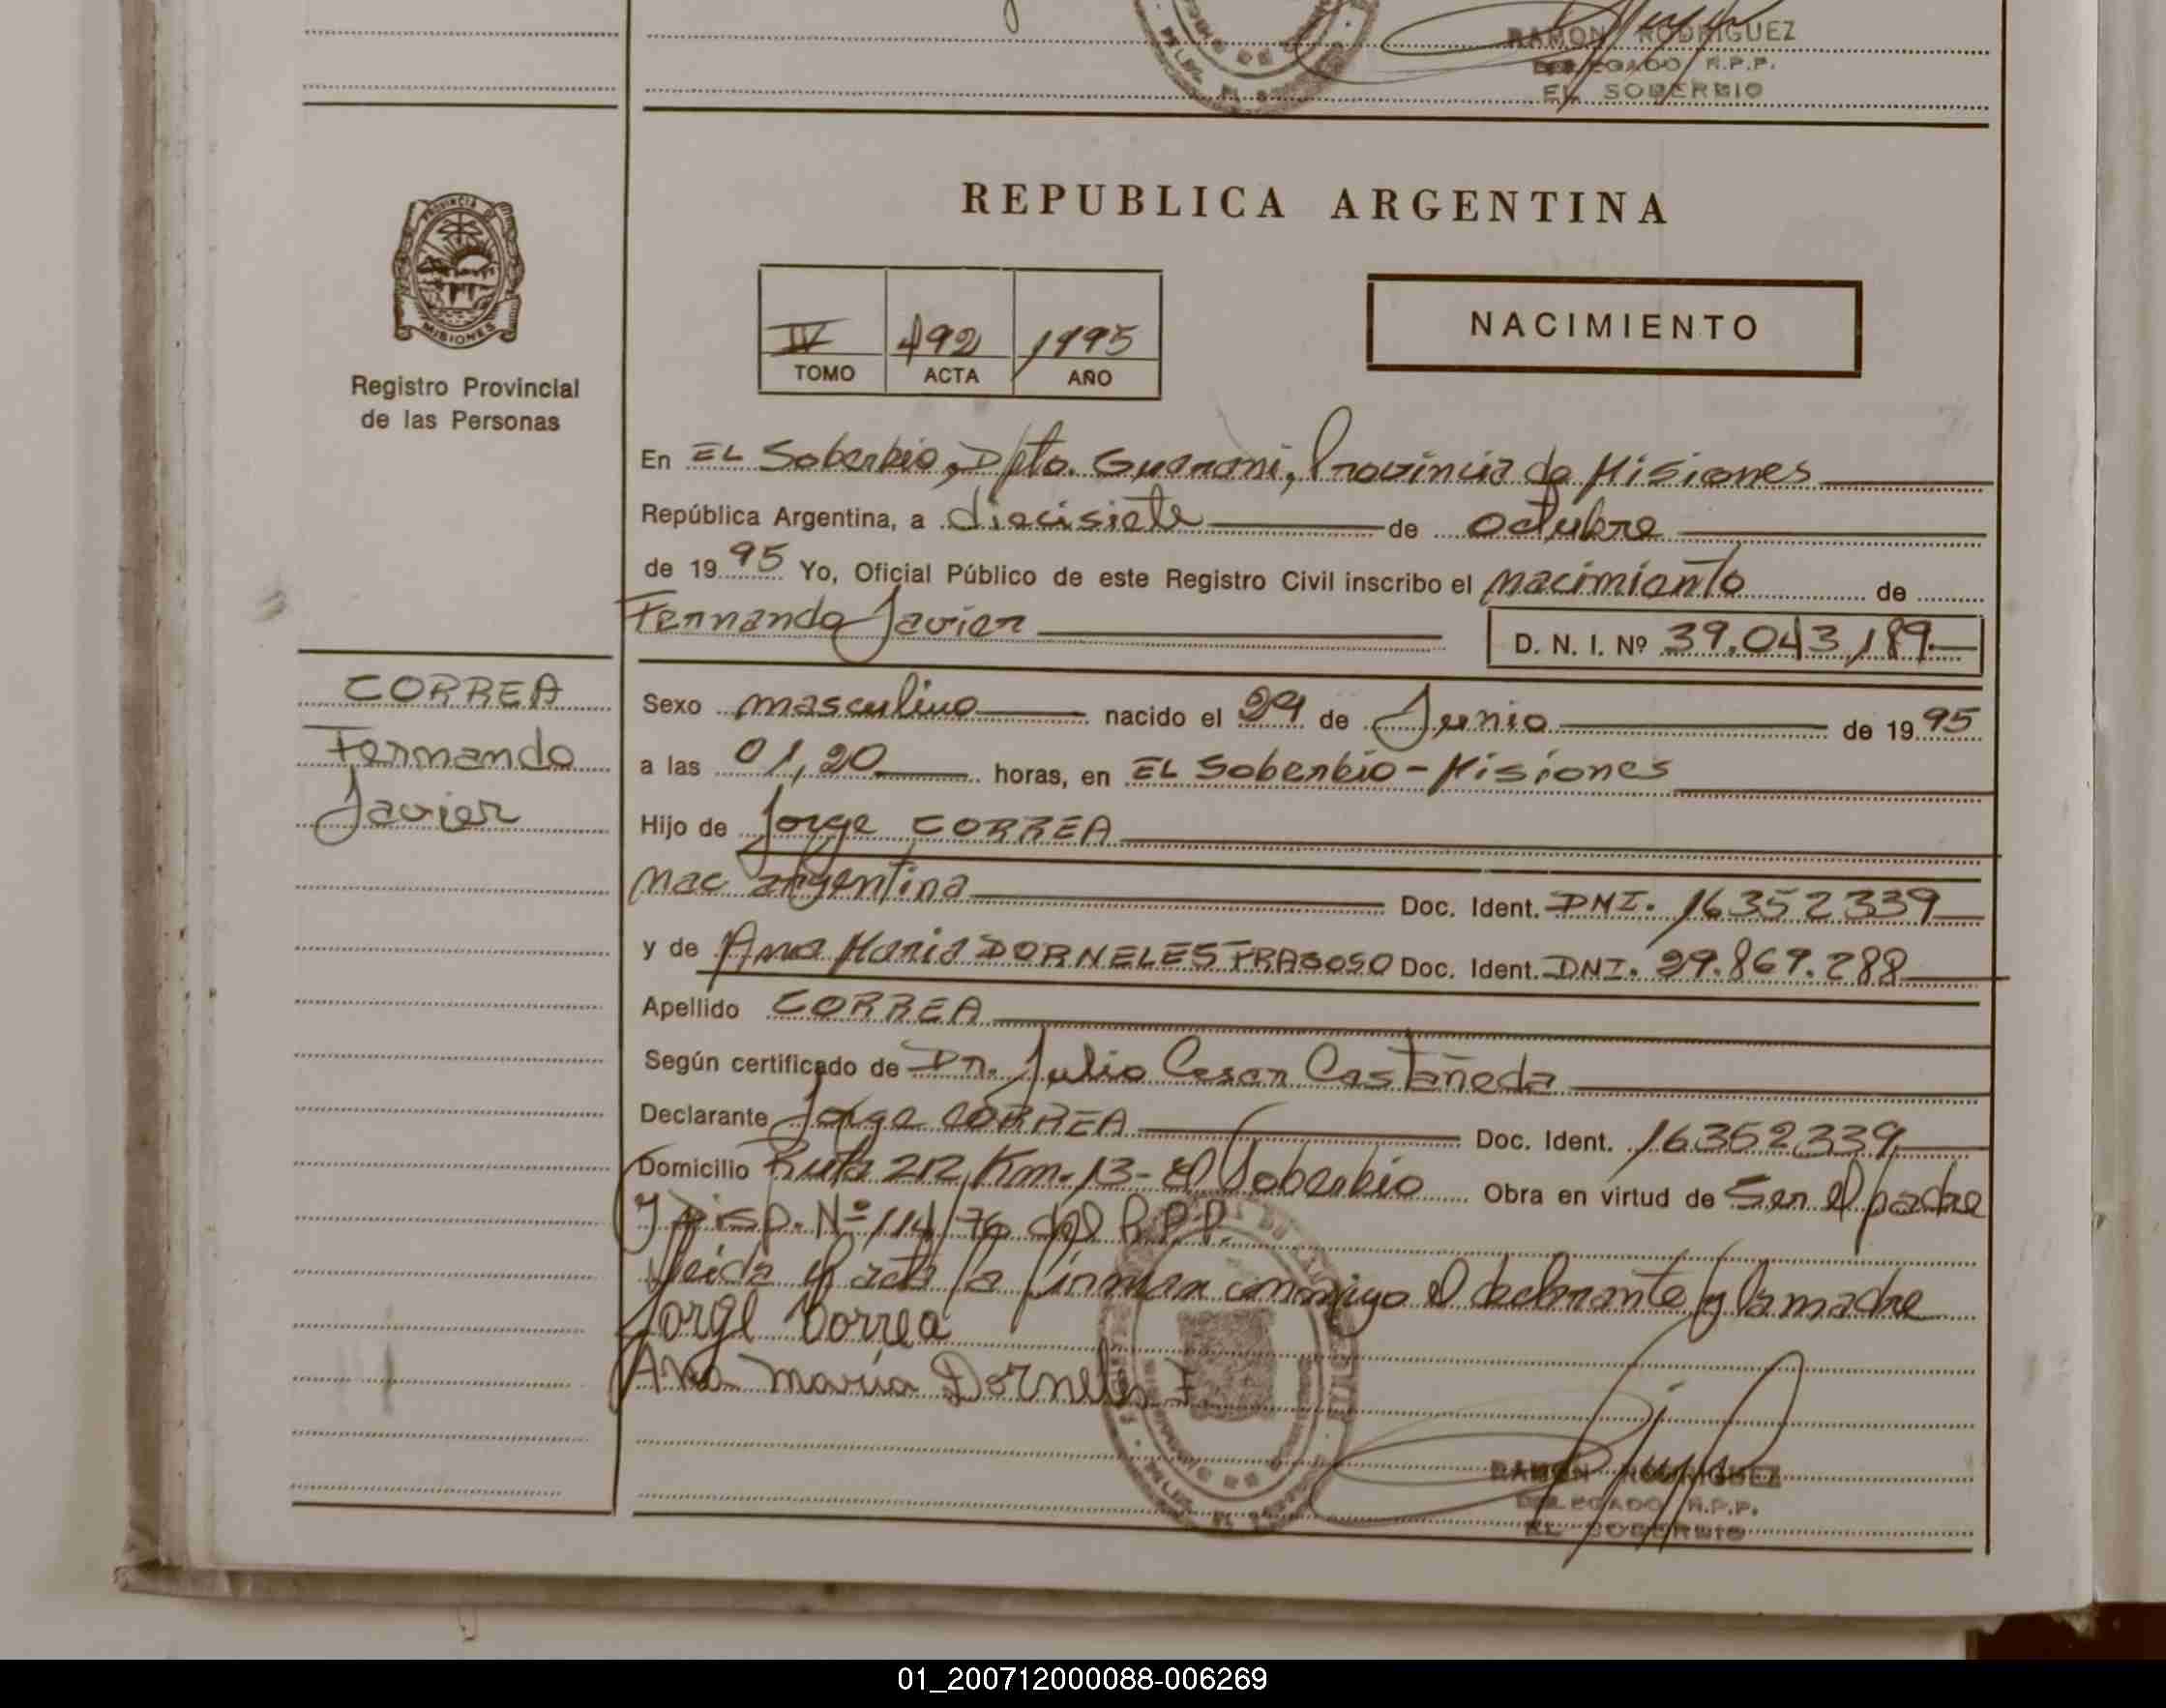 RAMON RODRIGUEZ
DELEGADO R.P.P.
EL SOBERBIO
PROVINCIA DE
MISIONES
Registro Provincial
de las Personas
REPUBLICA ARGENTINA
IV 492 1995
TOMO ACTA AÑO
NACIMIENTO
En EL Soberbio, Dpto. Guarani, Provincia de Misiones
República Argentina, a diecisiete de octubre
de 1995 Yo, Oficial Público de este Registro Civil inscribo el nacimiento de
Fernando Javier
D. N. I. Nº 39.043,189
CORREA
Fernando
Javier
Sexo masculino nacido el 29 de Junio de 1995
a las 01,20 horas, en EL Soberbio - Misiones
Hijo de Jorge CORREA
nac argentina Doc. Ident. DNI. 16352339
y de Ana Maria DORNELES FRAGOSO Doc. Ident. DNI. 29.869.288
Apellido CORREA
Según certificado de Dr. Julio Cesar Castañeda
Declarante Jorge CORREA Doc. Ident. 16352339
Domicilio Ruta 212 Km. 13 - El Soberbio Obra en virtud de Ser el padre
y Disp. Nº 114/76 del R.P.P.
Leida el acta la firman conmigo el declarante y la madre
Jorge Correa
Ana maria Dorneles F
RAMON RODRIGUEZ
DELEGADO R.P.P.
EL SOBERBIO
01_200712000088-006269